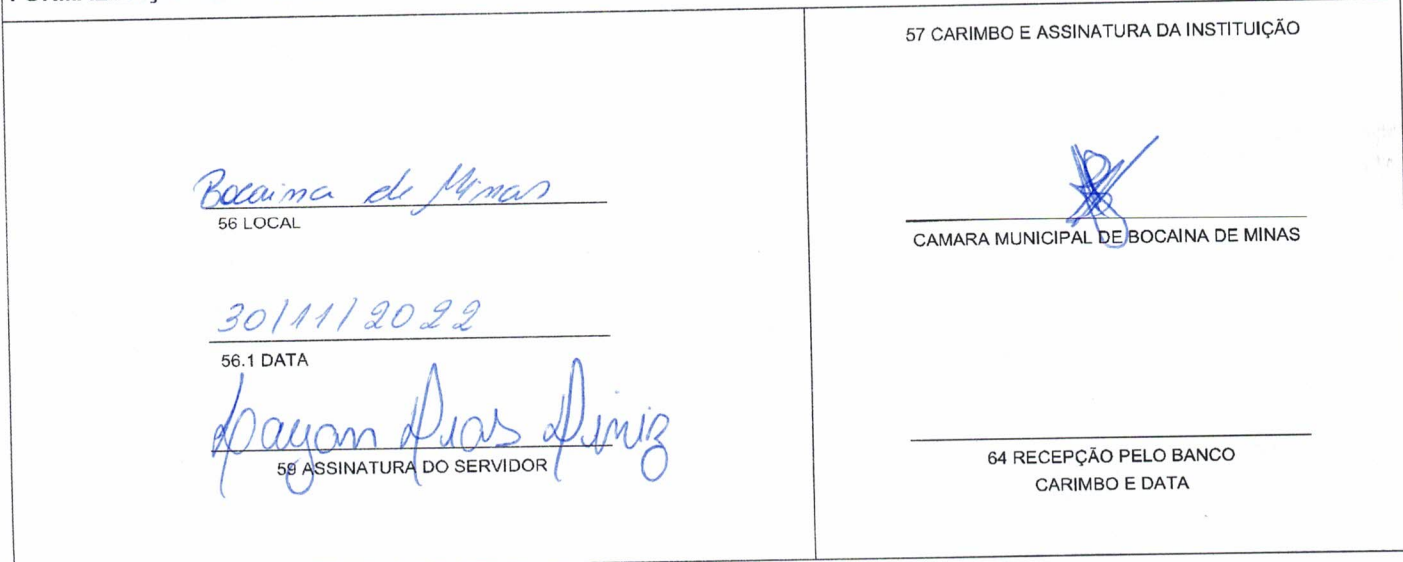 Bocaina de Minas
56 LOCAL
30/11/2022
56.1 DATA
Dayan Dias Diniz
59 ASSINATURA DO SERVIDOR
57 CARIMBO E ASSINATURA DA INSTITUIÇÃO
CAMARA MUNICIPAL DE BOCAINA DE MINAS
64 RECEPÇÃO PELO BANCO
CARIMBO E DATA